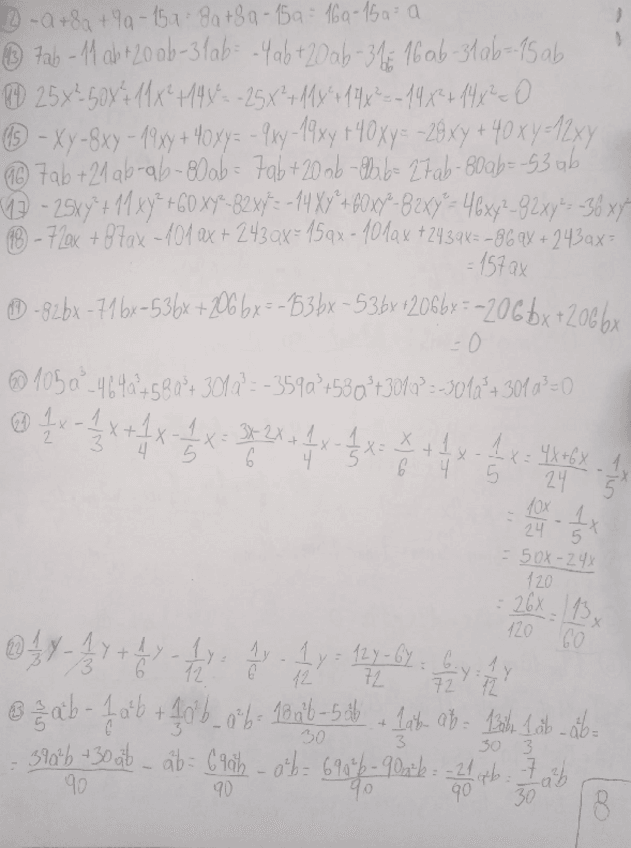 ⑫ -a+8a+9a-15a= 8a+8a-15a= 16a-15a= a
⑬ 7ab-11ab+20ab-31ab= -4ab+20ab-31ab= 16ab-31ab=-15ab
⑭ 25x²-50x²+11x²+14x²= -25x²+11x²+14x²=-14x²+14x²=0
⑮ -xy-8xy-19xy+40xy= -9xy-19xy+40xy= -28xy+40xy=12xy
⑯ 7ab+21ab-ab-80ab= 7ab+20ab-80ab= 27ab-80ab=-53ab
⑰ -25xy²+11xy²+60xy²-82xy²=-14xy²+60xy²-82xy²= 46xy²-82xy²=-36xy²
⑱ -72ax+87ax-101ax+243ax=15ax-101ax+243ax=-86ax+243ax=
=157ax
⑲ -82bx-71bx-53bx+206bx=-153bx-53bx+206bx=-206bx+206bx
=0
⑳ 105a³-464a³+58a³+301a³=-359a³+58a³+301a³=-301a³+301a³=0
㉑ 1/2x-1/3x+1/4x-1/5x= 3x-2x/6+1/4x-1/5x= x/6+1/4x-1/5x= 4x+6x/24-1/5x
= 10x/24-1/5x
= 50x-24x/120
= 26x/120=13/60x
㉒ 1/3y-1/3y+1/6y-1/12y= 1/6y-1/12y= 12y-6y/72= 6/72y=1/12y
㉓ 3/5a²b-1/6a²b+1/3a²b-a²b= 18a²b-5a²b/30+1/3a²b-a²b= 13a²b/30+1/3a²b-a²b=
= 39a²b+30a²b/90-a²b= 69a²b/90-a²b= 69a²b-90a²b/90= -21/90a²b= -7/30a²b
8